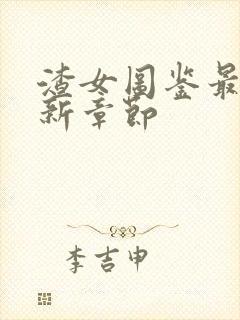 渣女图鉴最
新章节
李吉申